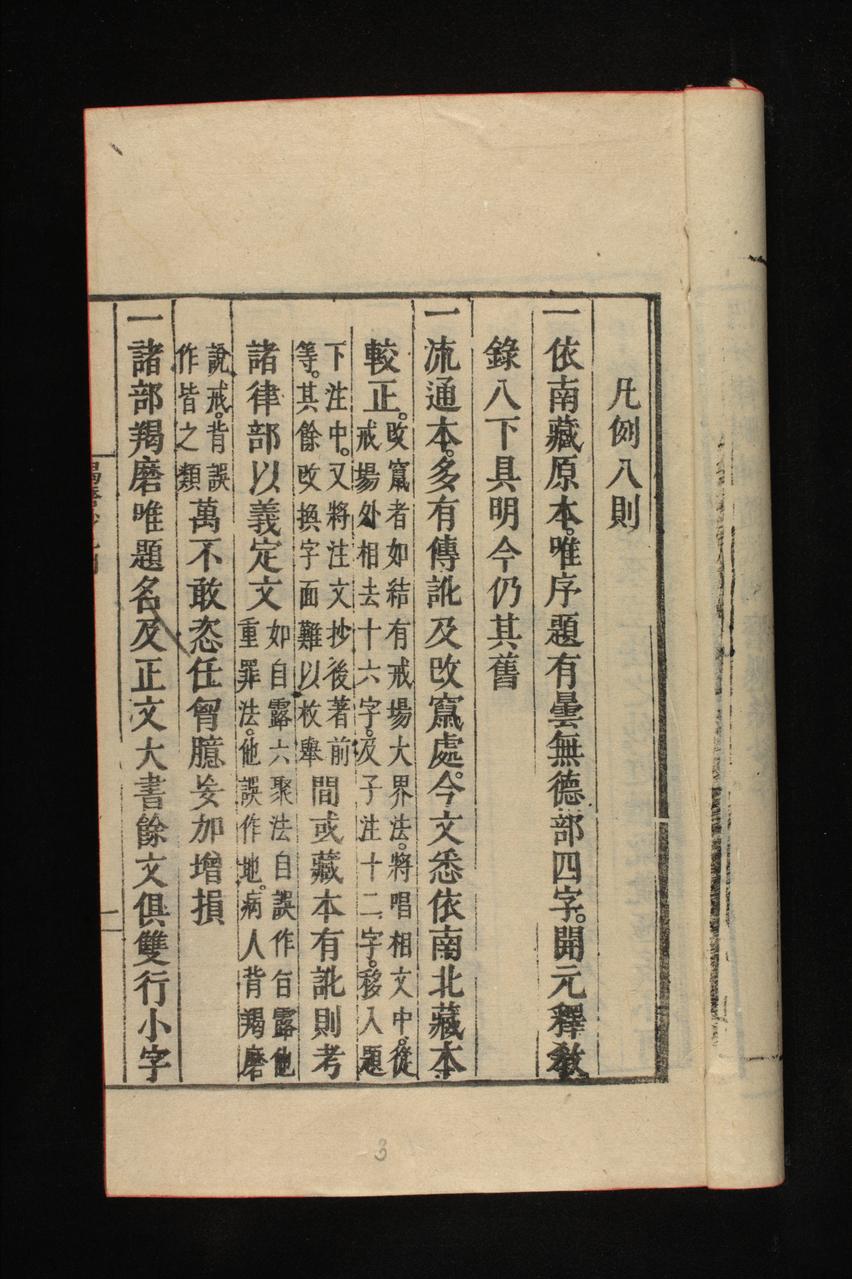 凡例八則
一依南藏原本。唯序題有曇無德部四字。開元釋教
錄八下具明今仍其舊
一流通本。多有傳訛及改竄處。今文悉依南北藏本
較正。
改竄者如結有戒場大界法。將唱相文中。從
戒場外相去十六字。及子注十二字。移入題
下注中。又將注文抄後著前
等。其餘改換字面難以枚舉
間或藏本有訛則考
諸律部以義定文
如自露六聚法自誤作白露他
重罪法。他誤作地。病人背羯磨
說戒。背誤
作皆之類
萬不敢恣任胷臆妄加增損
一諸部羯磨唯題名及正文大書餘文俱雙行小字
3